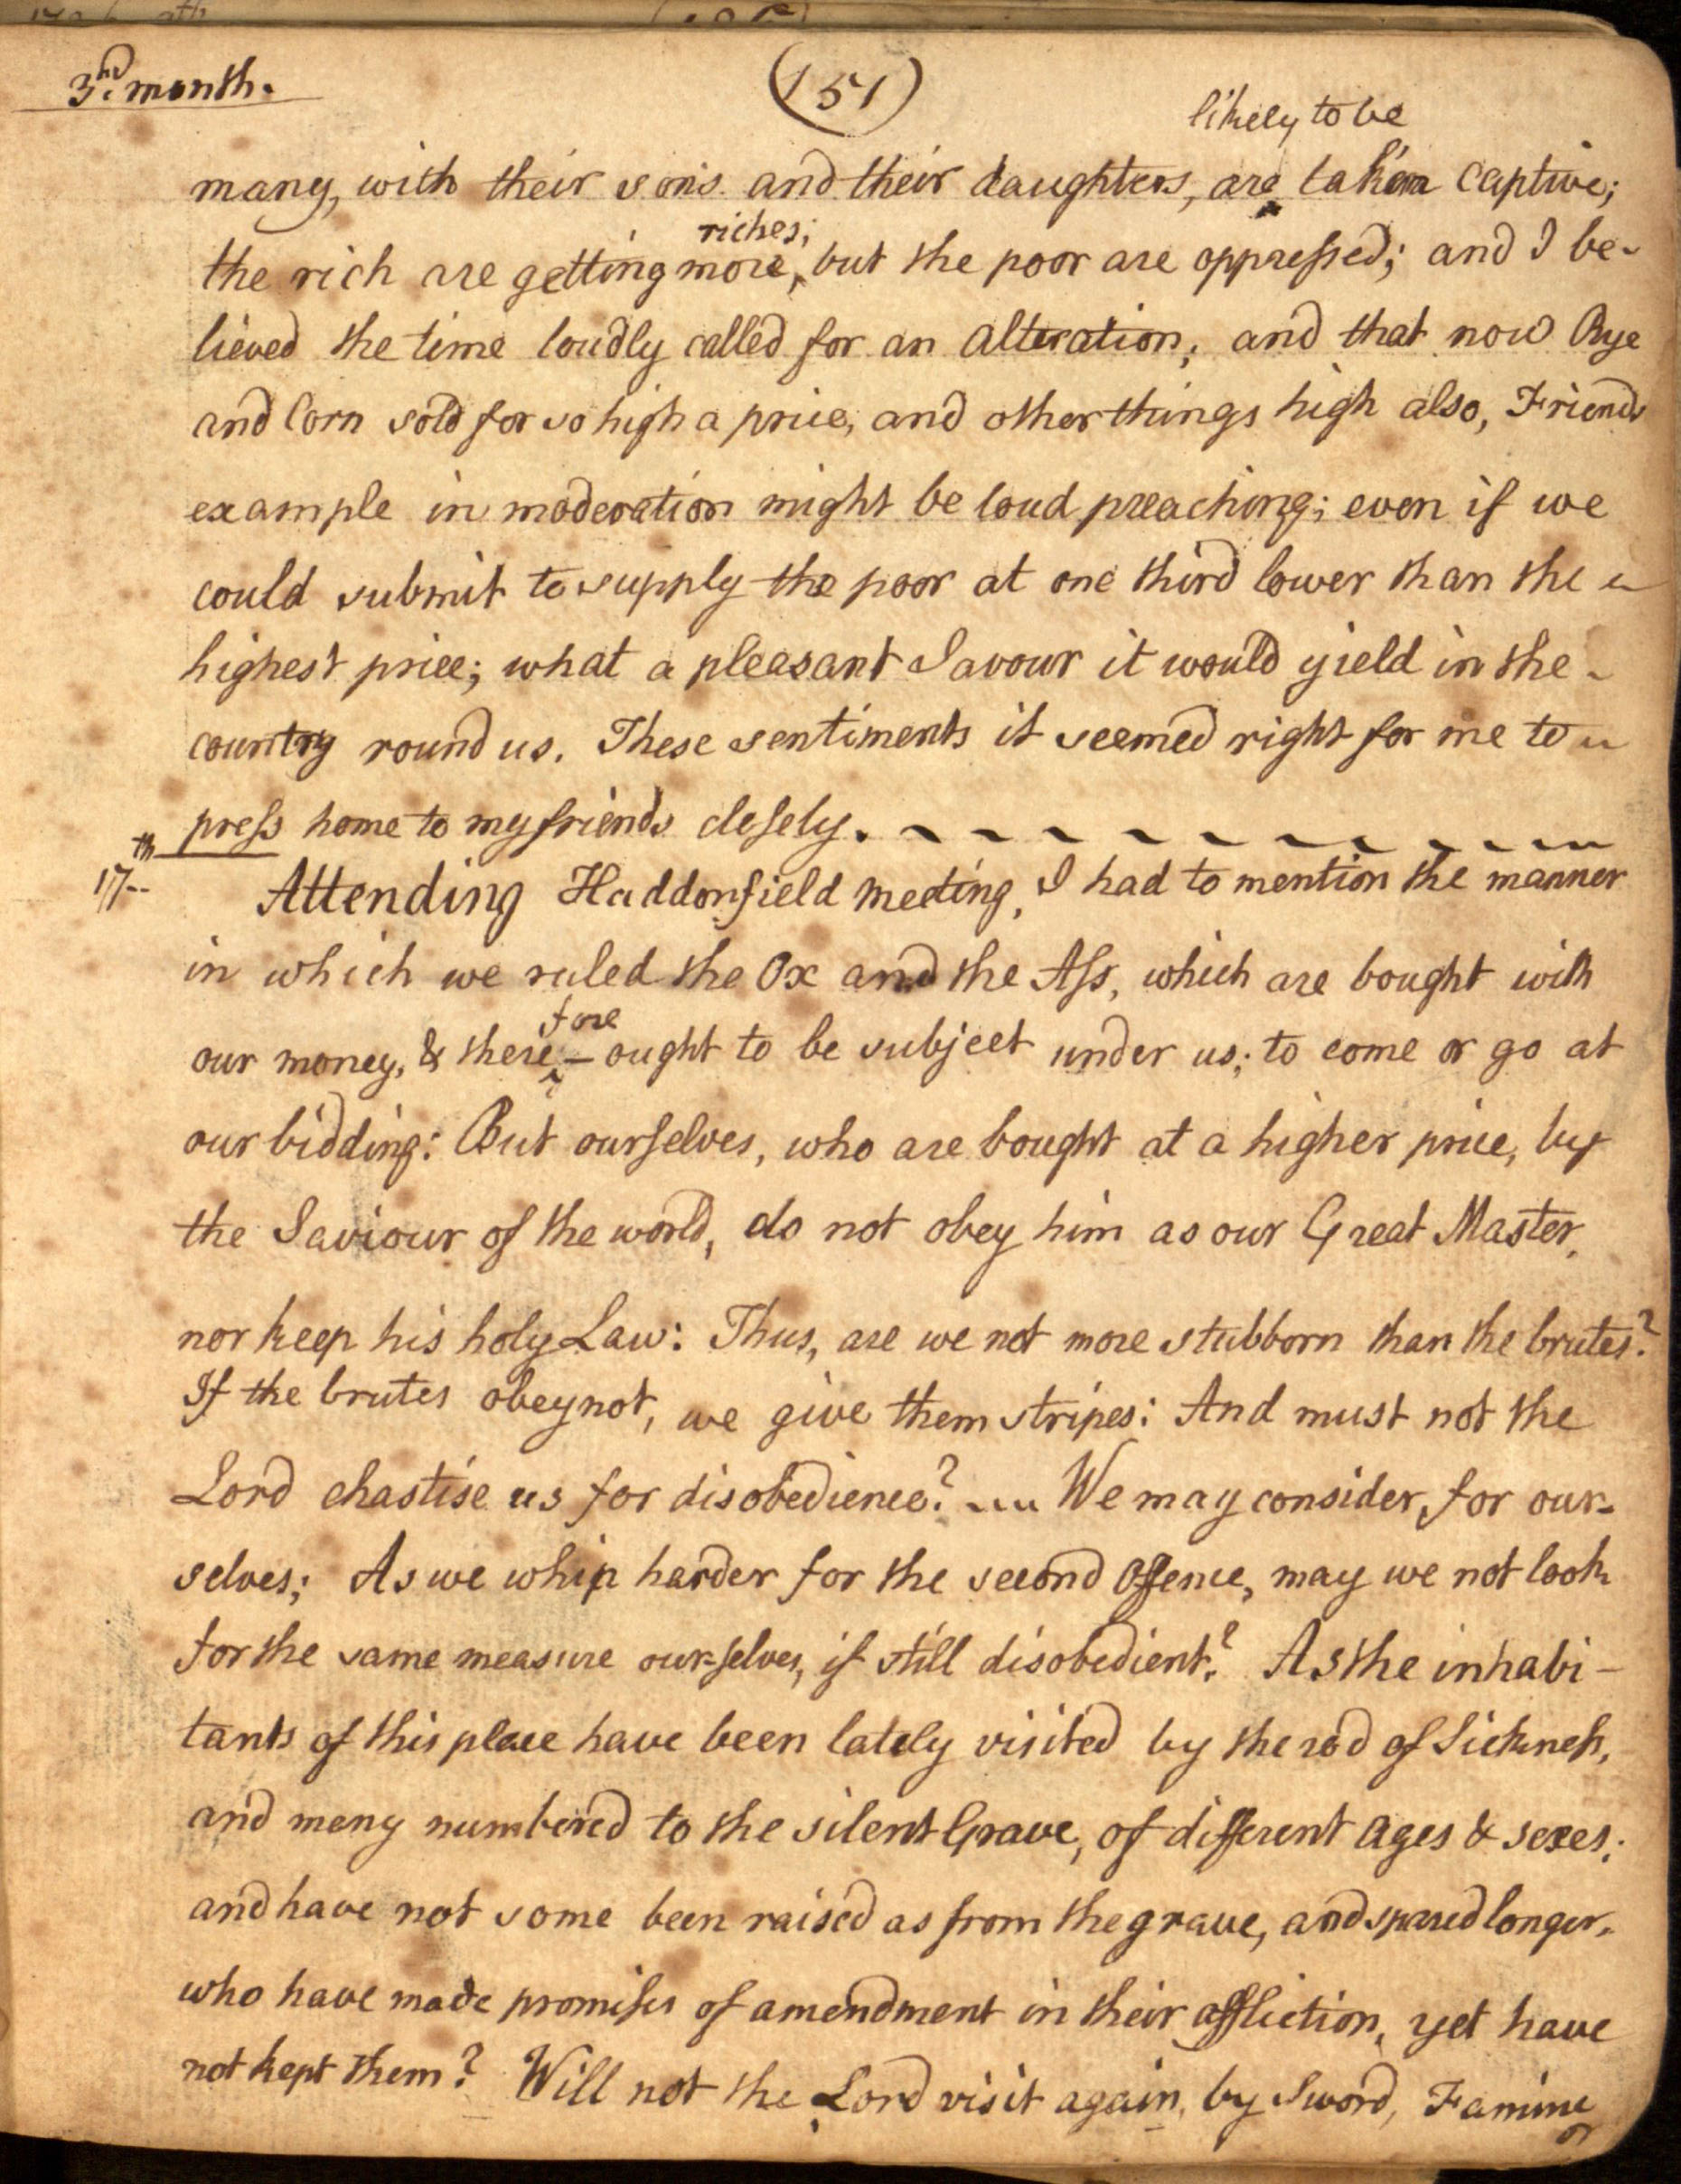 3.rd month.
(151)
likely to be
many, with their sons and their daughters, are taken captive;
riches;
the rich are getting more, but the poor are oppressed; and I be-
lieved the time loudly called for an alteration; and that now Rye
and Corn sold for so high a price, and other things high also, Friends
example in moderation might be loud preaching; even if we
could submit to supply the poor at one third lower than the
highest price; what a pleasant Savour it would yield in the
country round us. These sentiments it seemed right for me to
press home to my friends closely.
17th Attending Haddonfield meeting, I had to mention the manner
in which we ruled the Ox and the Ass, which are bought with
fore
our money, & there- ought to be subject under us; to come or go at
our bidding: But ourselves, who are bought at a higher price, by
the Saviour of the world, do not obey him as our Great Master,
nor keep his holy Law: Thus, are we not more stubborn than the brutes?
If the brutes obey not, we give them stripes: And must not the
Lord chastise us for disobedience? We may consider, for our-
selves; As we whip harder for the second offence, may we not look
for the same measure ourselves, if still disobedient? As the inhabi-
tants of this place have been lately visited by the rod of Sickness,
and meny numbered to the silent Grave, of different ages & sexes;
and have not some been raised as from the grave, and spared longer,
who have made promises of amendment in their affliction, yet have
not kept them? Will not the Lord visit again, by Sword, Famine
or